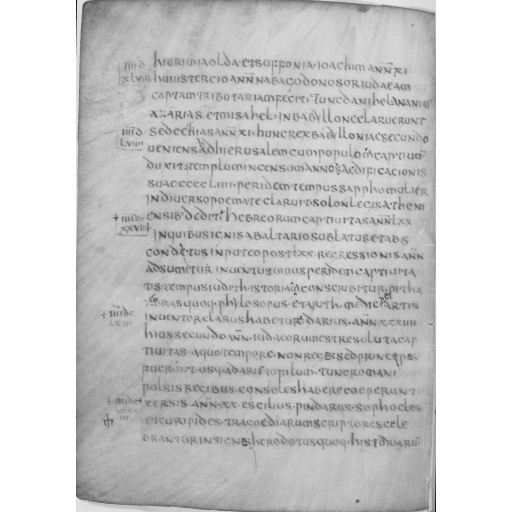 hieremia olda et suffonia · ioachim ann xi
huius tercio ann nabagodonosor iudaeam
captam tributariam fecit · tunc danihel anania
azarias · et misahel · in babylone claruerunt
sedechias ann xi · hunc rex babylloniae secundo
ueniens ad hierusalem cum populo captiuu
duxit templum incensum anno aedificacionis
suae cccc liiii · per idem tempus sappho mulier
in diuerso poemate claruit · solon leges atheni
ensib dedit · hebreorum captiuitas ann lxx
in quibus ignis ab altario sublatus et abs
conditus in puteo post lxx · regressionis ann
adsumitur inuentus · cuius per idem captiuita
tis tempus iudith istoria conscribitur · pitha
goras quoq philosopus · et arith medic artis
inuentor clarus habetur · darius · ann xxxiiii
hius secundo ann iudaeorum est resoluta cap
tiuitas · a quo tempore · non reges sed principes
fuerunt usq ad aristopilum · tunc romani
pulsis regibus consoles habere coeperunt
xersis · ann xx · escilius · pindarus · sophocles
et euripides · tragoediarum scriptores cele
brantur insignes · herodotus quoq historiaru